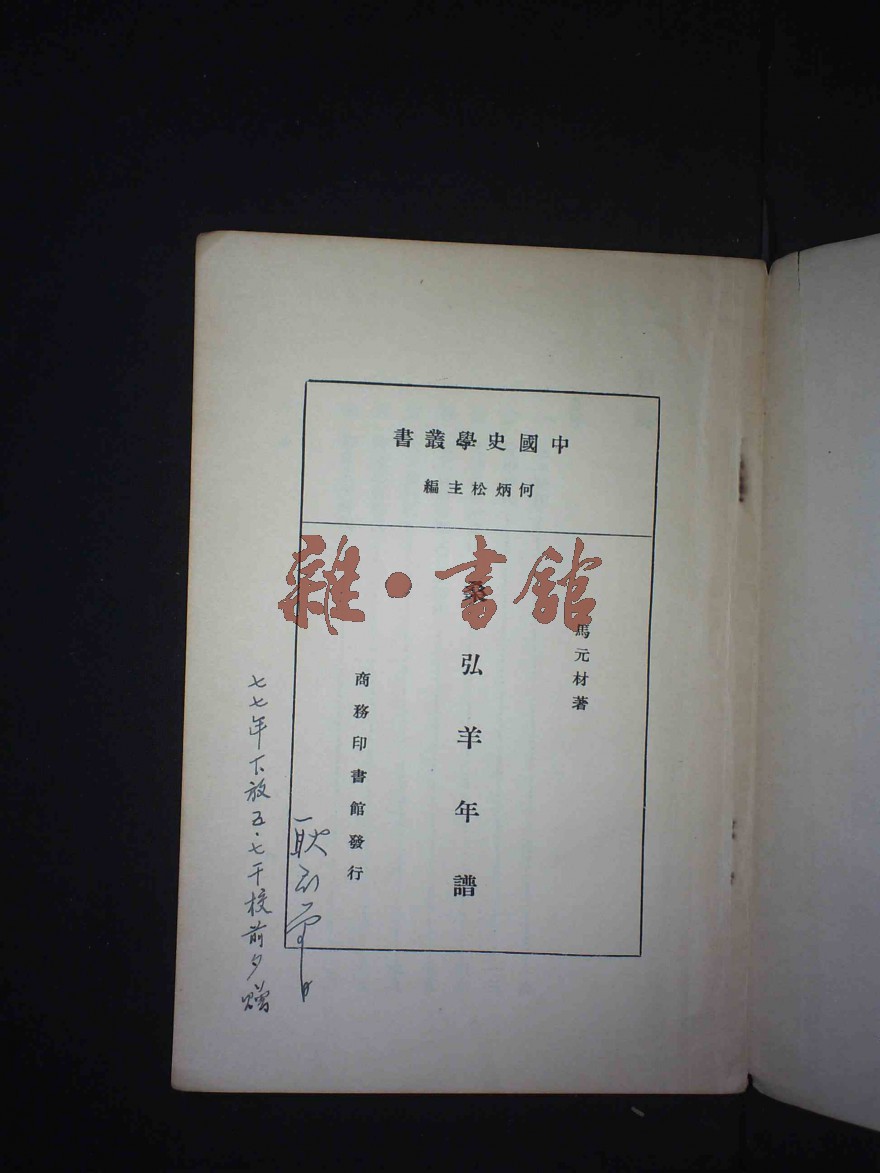 中國史學叢書
何炳松主編
馬元材著
桑弘羊年譜
商務印書館發行
七七年下放五·七干校前夕贈
雜·書館